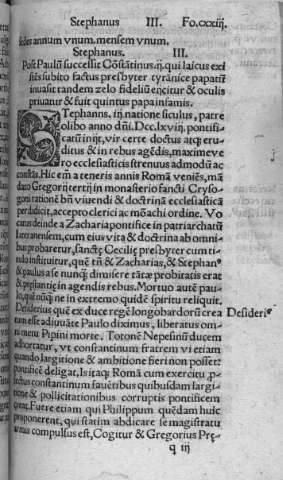 Stephanus III. Fo.cxxiij.
sedes annum vnum.mensem vnum.
Stephanus. III.
Post Paulū successit Cōstātinus.ij.qui laicus exi
stēs subito factus presbyter tyrānice papatū
inuasit tandem zelo fideliū encitur & oculis
priuatur & fuit quintus papa infamis.
STephanns.iij.natione siculus, patre
olibo anno dñi.Dcc.lxviij.pontifi-
catū inijt, vir certe doctus atq; eru-
ditus & in rebus agēdis,maxime ve
ro ecclesiasticis strenuus admodū ac
cōstās.Hic em̄ a teneris annis Romā veniēs,mā
dato Gregorij tertij in monasterio sancti Cryso-
goni rationē bn̄ viuendi & doctrinā ecclesiasticā
perdidicit,accepto clerici ac mōachi ordine. Vo
catus deinde a Zacharia pontifice in patriarchatū
lateranensem,cum eius vita & doctrina ab omni
bus probaretur, sanctę Cecilię presbyter cum ti-
tulo instituitur, que tn̄ & Zacharias, & Stephanꝰ
& paulus a se nunq̄; dimisere tātæ probitatis erat
& pręstantię in agendis rebus.Mortuo autē pau-
lo, quē nūq̄; ne in extremo quidē spiritu reliquit,
Desiderius que ex duce regē longobardorū crea Desideriꝰ
tum esse adiuuāte Paulo diximus, liberatus om-
ni metu Pipini morte. Totonē Nepesinū ducem
adhortatur, vt constantinum fratrem vi etiam
quando largitione & ambitione fieri non posset
pontificē deligat, Is itaq; Romā cum exercitu p-
fectus constantinum fauētibus quibusdam largi-
tione & pollicitationibus corruptis pontificem
creat.Fuere etiam qui Philippum quēdam huic
proponerent, qui statim abdicare se magistratu
compulsus est, Cogitur & Gregorius Pre-
q iij